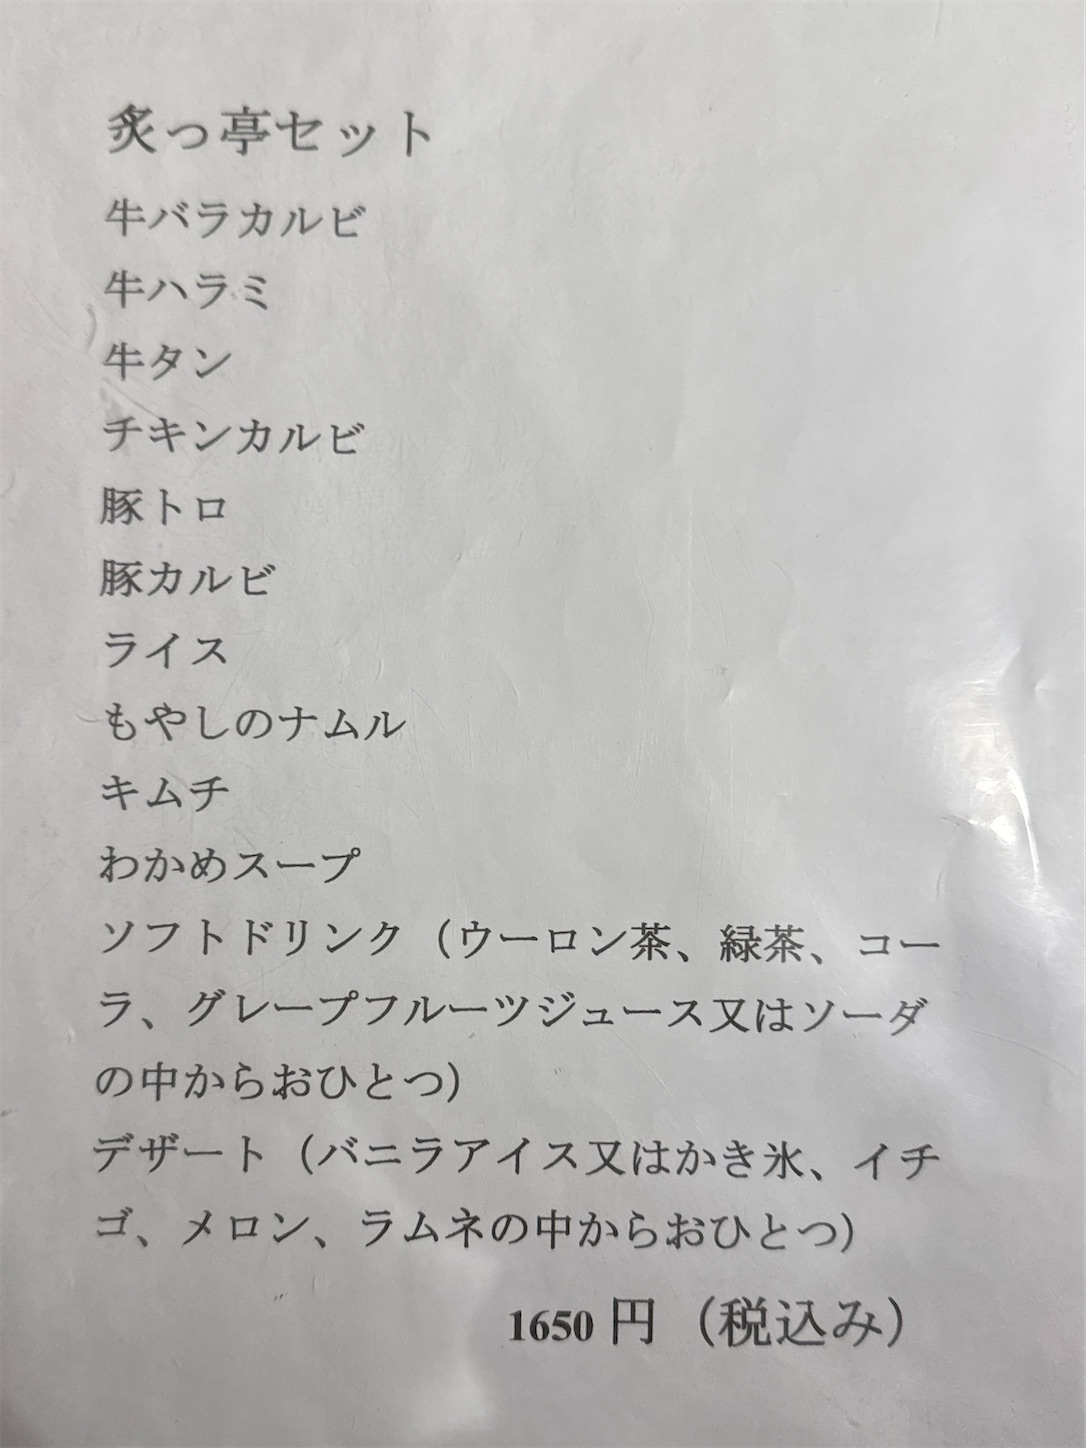 炙っ亭セット
牛バラカルビ
牛ハラミ
牛タン
チキンカルビ
豚トロ
豚カルビ
ライス
もやしのナムル
キムチ
わかめスープ
ソフトドリンク（ウーロン茶、緑茶、コー
ラ、グレープフルーツジュース又はソーダ
の中からおひとつ）
デザート（バニラアイス又はかき氷、イチ
ゴ、メロン、ラムネの中からおひとつ）
1650 円（税込み）